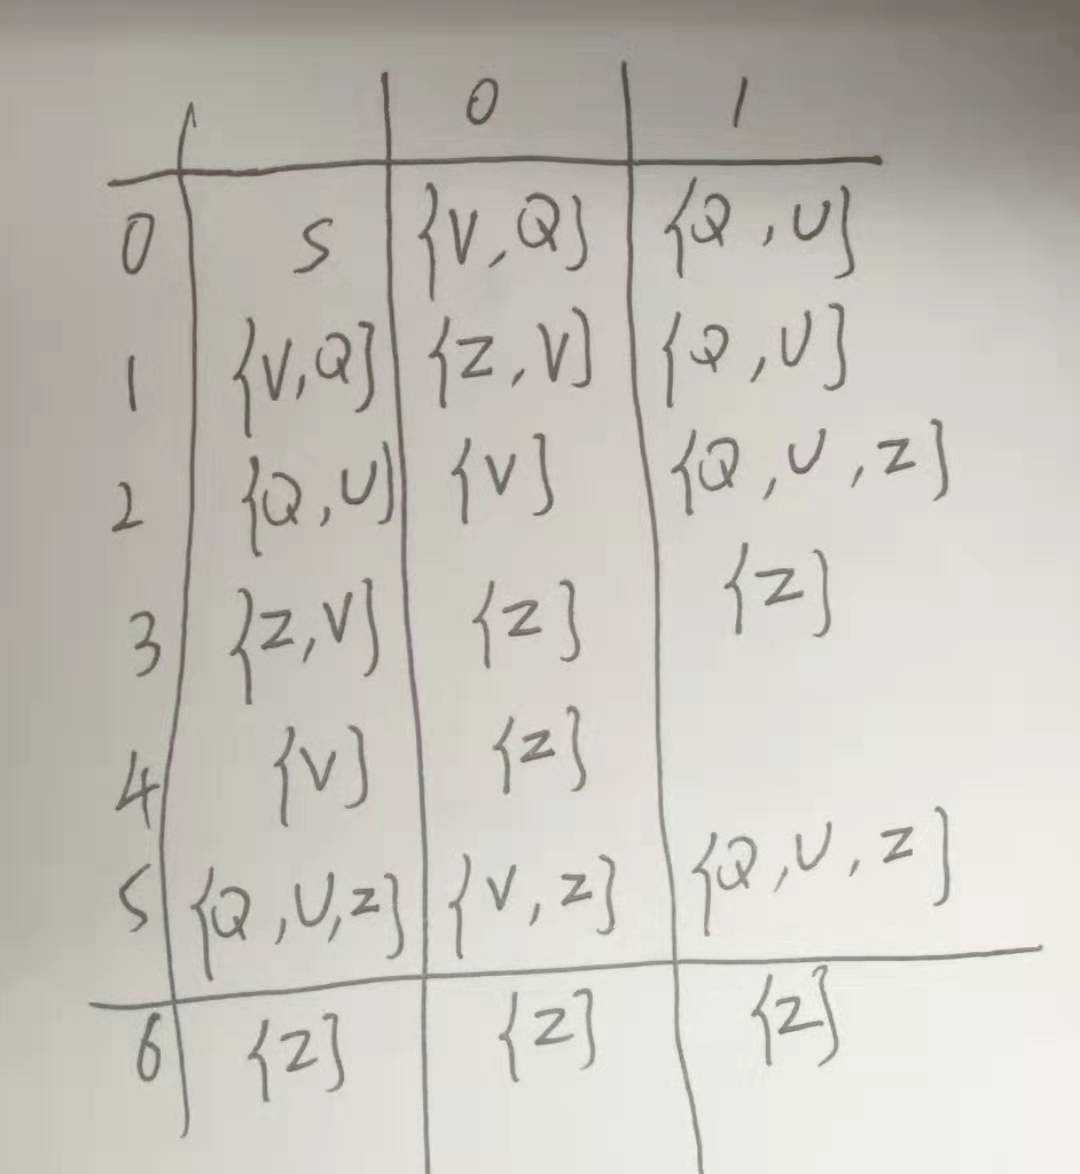 0 1
0 S {V,Q} {Q,U}
1 {V,Q} {Z,V} {Q,U}
2 {Q,U} {V} {Q,U,Z}
3 {Z,V} {Z} {Z}
4 {V} {Z}
5 {Q,U,Z} {V,Z} {Q,U,Z}
6 {Z} {Z} {Z}